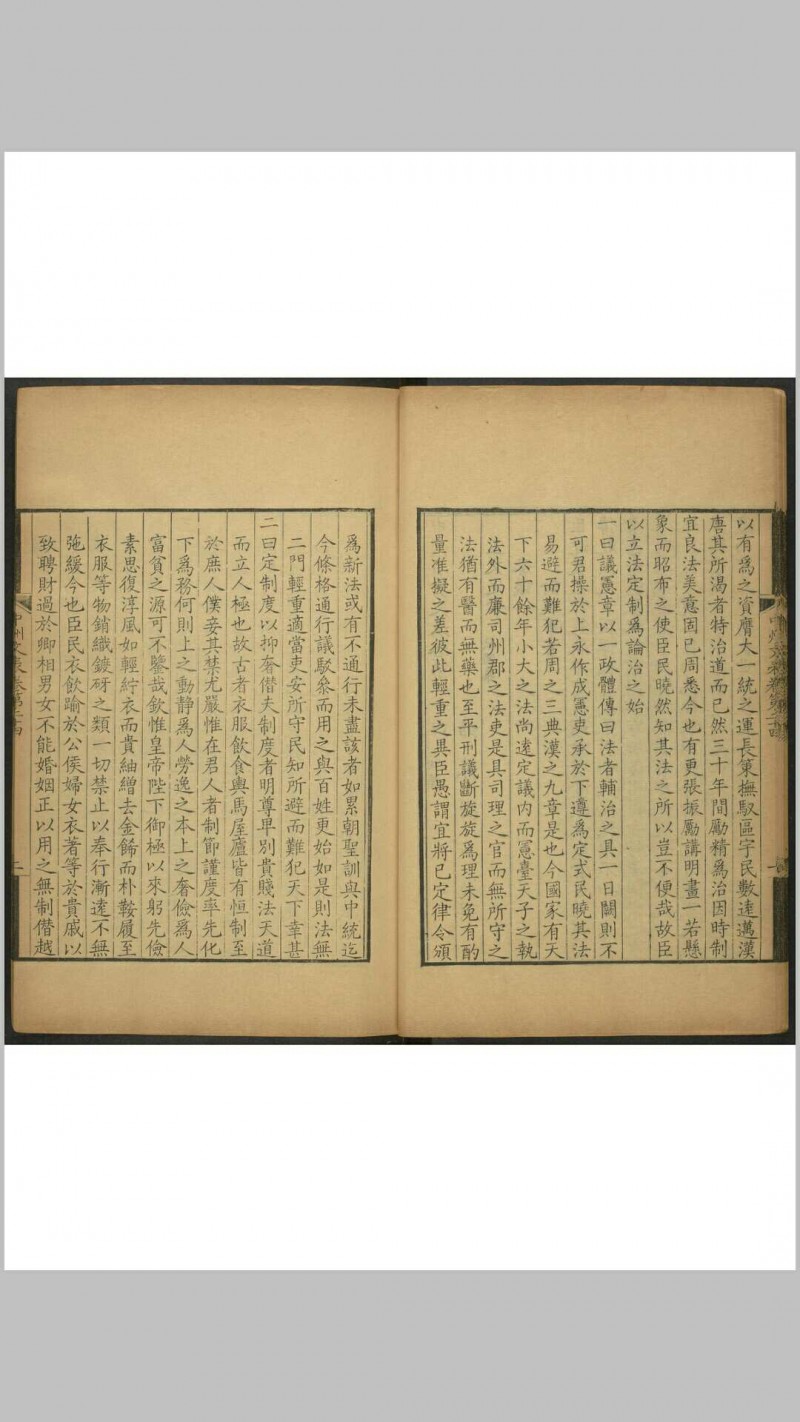 以有爲之資膺大一統之運長策撫馭區宇民數遠邁漢
唐其所渴者特治道而已然三十年間勵精爲治因時制
宜良法美意固已周悉今也有更張振勵講明畫一若懸
象而昭布之使臣民曉然知其法之所以豈不便哉故臣
以立法定制爲論治之始
一曰議憲章以一政體傳曰法者輔治之具一日闕則不
可君操於上永作成憲吏承於下遵爲定式民曉其法
易避而難犯若周之三典漢之九章是也今國家有天
下六十餘年小大之法尚遠定議內而憲臺天子之執
法外而廉司州郡之法吏是具司理之官而無所守之
法猶有醫而無藥也至平刑議斷旋旋爲理未免有酌
量准擬之差彼此輕重之異臣愚謂宜將已定律令頒
爲新法或有不通行未盡該者如累朝聖訓與中統迄
今條格通行議駁參而用之與百姓更始如是則法無
二門輕重適當吏安所守民知所避而難犯天下幸甚
二曰定制度以抑奢僭夫制度者明尊卑別貴賤法天道
而立人極也故古者衣服飲食輿馬屋廬皆有恒制至
於庶人僕妾其禁尤嚴惟在君人者制節謹度率先化
下爲務何則上之動靜爲人勞逸之本上之奢儉爲人
富貧之源可不鑒哉欽惟皇帝陛下御極以來躬先儉
素思復淳風如輕紵衣而貴紬繒去金餙而朴鞍履至
衣服等物銷織鍍砑之類一切禁止以奉行漸遠不無
弛緩今也臣民衣飲踰於公侯婦女衣著等於貴戚以
致聘財過於卿相男女不能婚姻正以用之無制僭越
中州文表卷第二十四
二